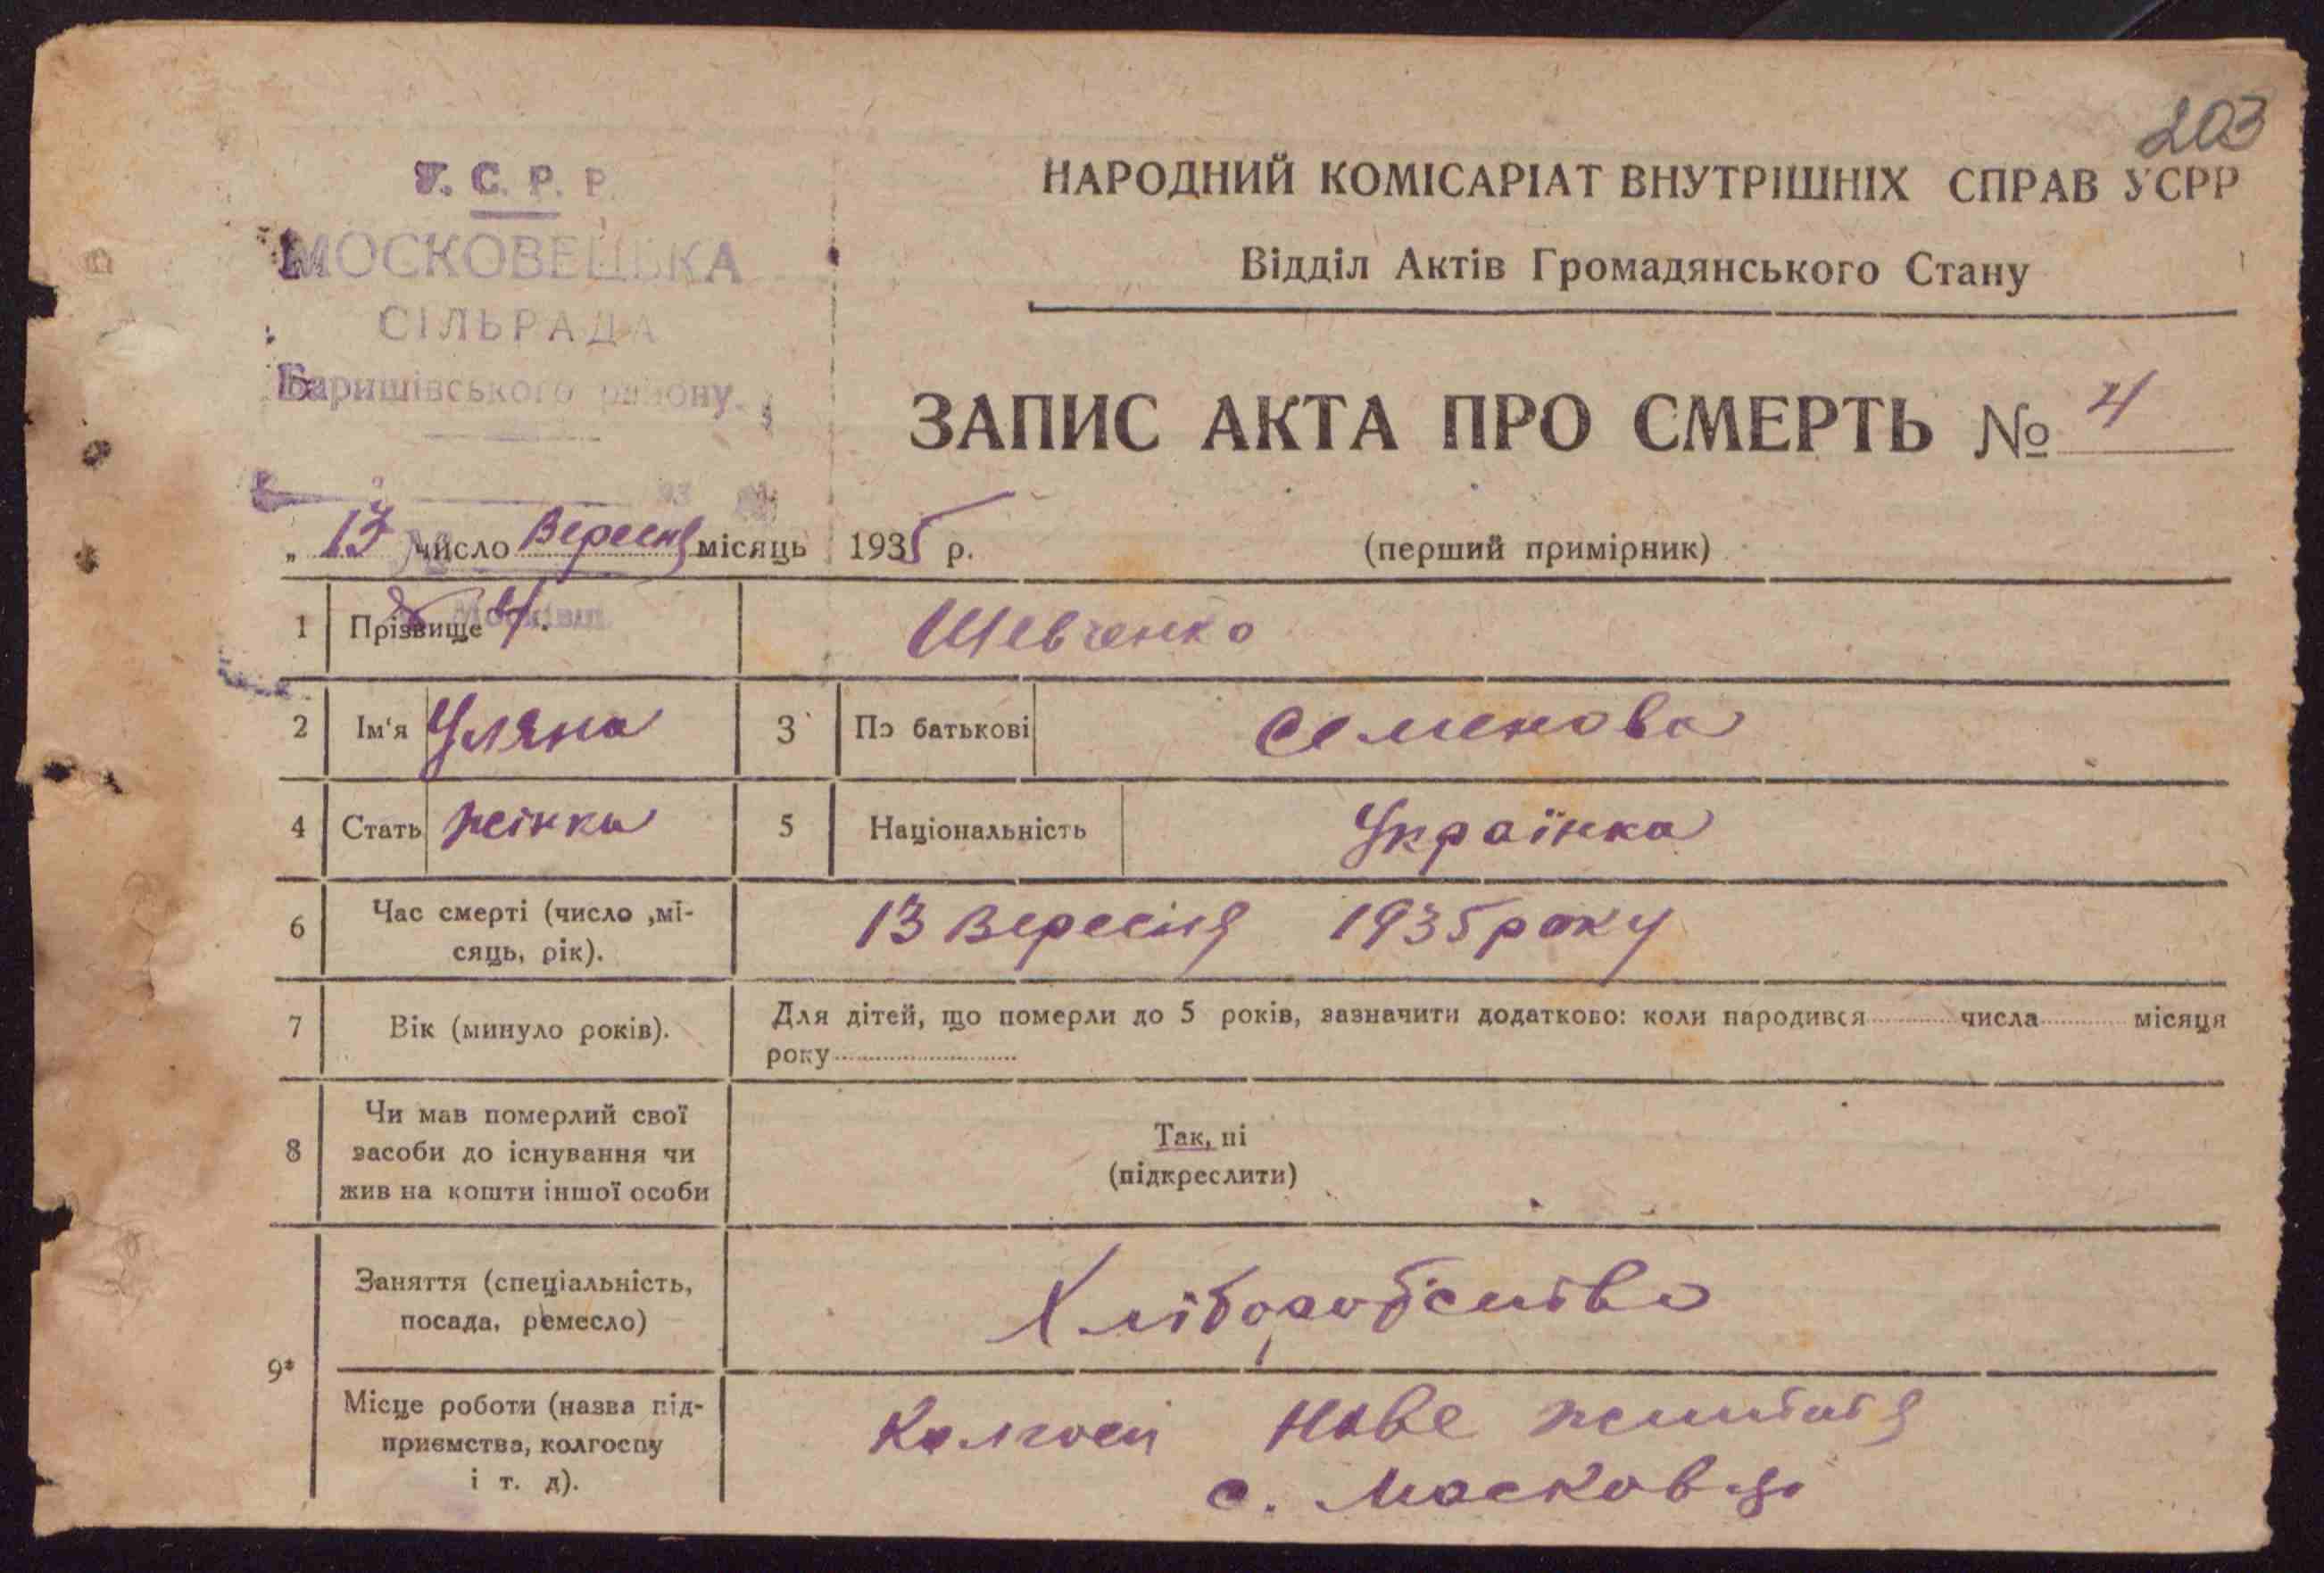 203
У. С. Р. Р.
МОСКОВЕЦЬКА
СІЛЬРАДА
Баришівського району.
НАРОДНИЙ КОМІСАРІАТ ВНУТРІШНІХ СПРАВ УСРР
Відділ Актів Громадянського Стану
ЗАПИС АКТА ПРО СМЕРТЬ № 4
„ 13 число Вересня місяць 1935 р.
(перший примірник)
1 Прізвище Шевченко
2 Ім'я Уляна 3 По батькові Семенова
4 Стать жінка 5 Національність Українка
6 Час смерті (число ,мі-
сяць, рік). 13 Вересня 1935 року
7 Вік (минуло років). Для дітей, що померли до 5 років, зазначити додатково: коли народився числа місяця
року
8 Чи мав померлий свої
засоби до існування чи
жив на кошти іншої особи
Так, ні
(підкреслити)
9*
Заняття (спеціальність,
посада, ремесло) Хліборобство
Місце роботи (назва під-
приємства, колгоспу
і т. д).
Колгосп Нове життя
с. Масковці